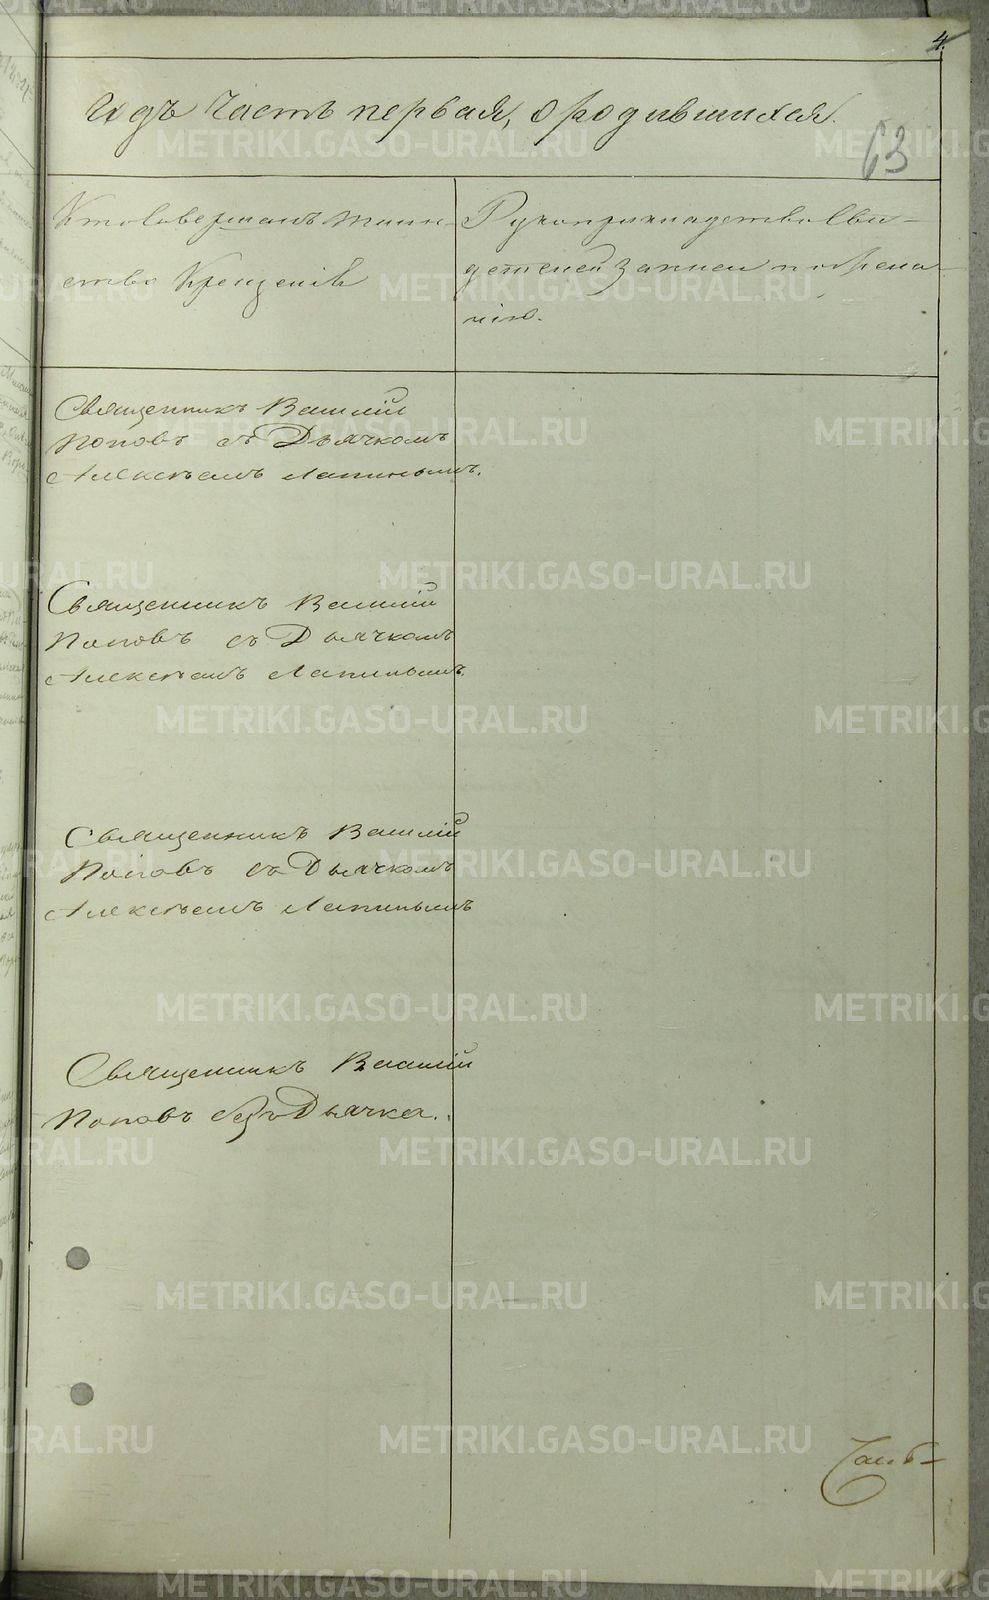 4.
годъ часть первая, о родившихся.
63
Кто совершалъ таин-
ство Крещенія
Рукоприкладство сви-
детелей записи по жела-
нію.
Священникъ Василій
Поповъ съ Дьячкомъ
Алексѣемъ Лапинымъ.
Священникъ Василій
Поповъ съ Дьячкомъ
Алексѣемъ Лапинымъ.
Священникъ Василій
Поповъ съ Дьячкомъ
Алексѣемъ Лапинымъ
Священникъ Василій
Поповъ безъ Дьячка.
METRIKI.GASO-URAL.RU